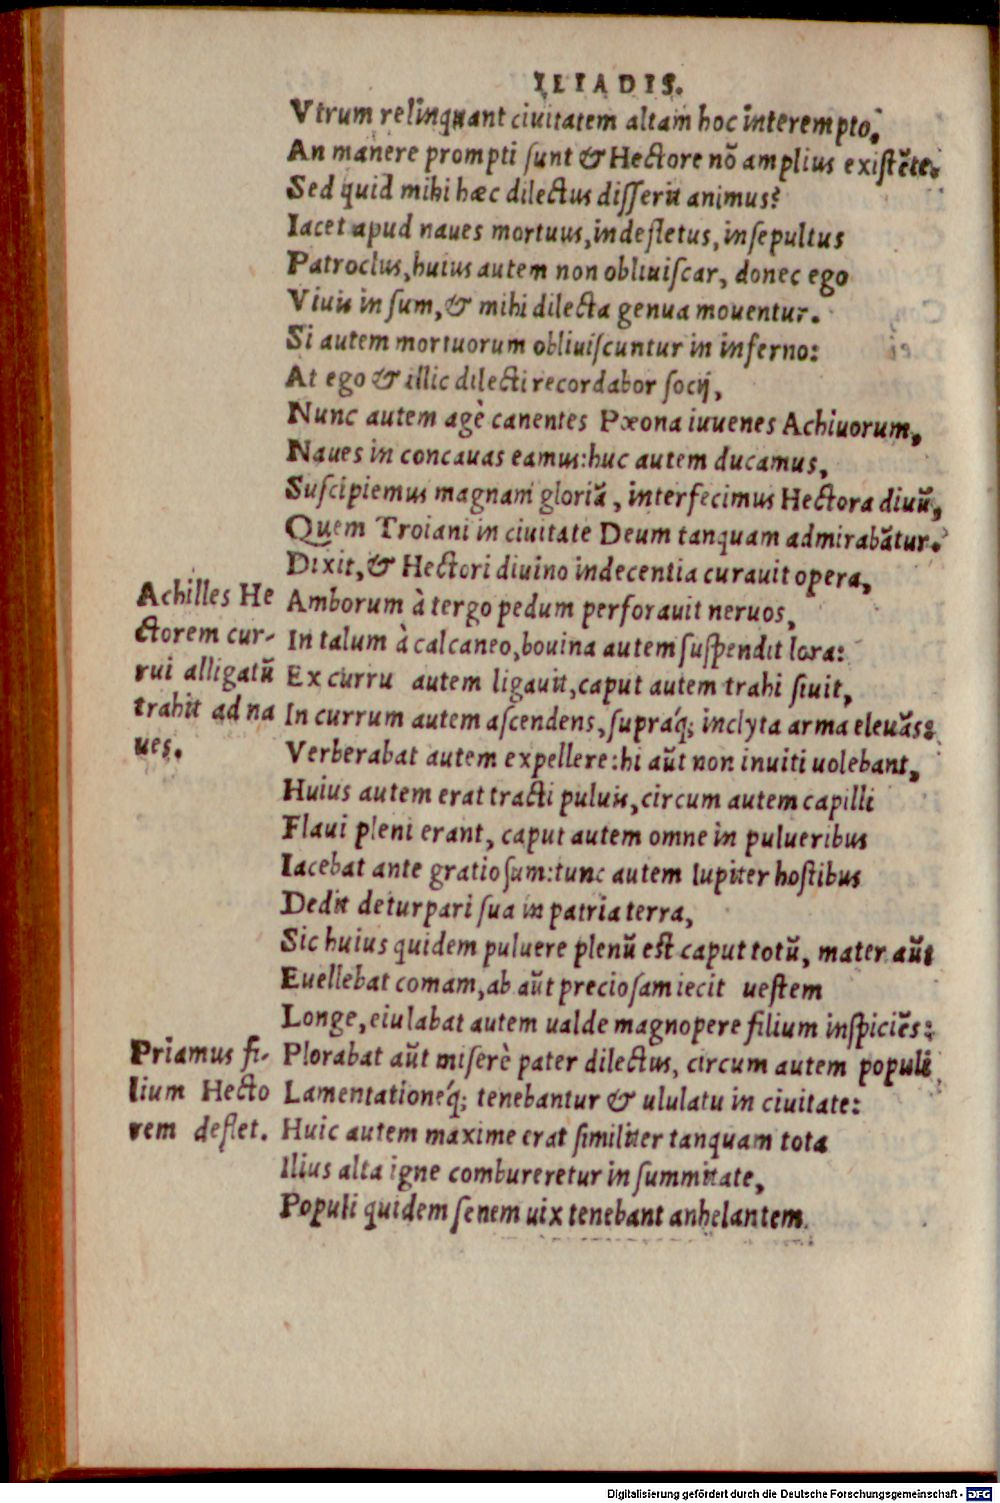 ILIADIS.
Vtrum relinquant ciuitatem altam hoc interempto,
An manere prompti sunt & Hectore nõ amplius existẽte.
Sed quid mihi hæc dilectus disserit animus?
Iacet apud naues mortuus, indefletus, insepultus
Patroclus, huius autem non obliuiscar, donec ego
Viuis in sum, & mihi dilecta genua mouentur.
Si autem mortuorum obliuiscuntur in inferno:
At ego & illic dilecti recordabor socij,
Nunc autem agè canentes Pæona iuuenes Achiuorum,
Naues in concauas eamus: huc autem ducamus,
Suscipiemus magnam gloriã, interfecimus Hectora diuũ,
Quem Troiani in ciuitate Deum tanquam admirabãtur.
Dixit, & Hectori diuino indecentia curauit opera,
Achilles He
ctorem cur-
rui alligatũ
trahit ad na
ues.
Amborum à tergo pedum perforauit neruos,
In talum à calcaneo, bouina autem suspendit lora:
Ex curru autem ligauit, caput autem trahi siuit,
In currum autem ascendens, supráq; inclyta arma eleuãs:
Verberabat autem expellere: hi aũt non inuiti uolebant,
Huius autem erat tracti puluis, circum autem capilli
Flaui pleni erant, caput autem omne in pulueribus
Iacebat ante gratiosum: tunc autem Iupiter hostibus
Dedit deturpari sua in patria terra,
Sic huius quidem puluere plenũ est caput totũ, mater aũt
Euellebat comam, ab aũt preciosam iecit uestem
Longe, eiulabat autem ualde magnopere filium inspiciẽs:
Priamus fi-
lium Hecto
rem deflet.
Plorabat aũt miserè pater dilectus, circum autem populi
Lamentationéq; tenebantur & ululatu in ciuitate:
Huic autem maxime erat similiter tanquam tota
Ilius alta igne combureretur in summitate,
Populi quidem senem uix tenebant anhelantem
Digitalisierung gefördert durch die Deutsche Forschungsgemeinschaft - DFG